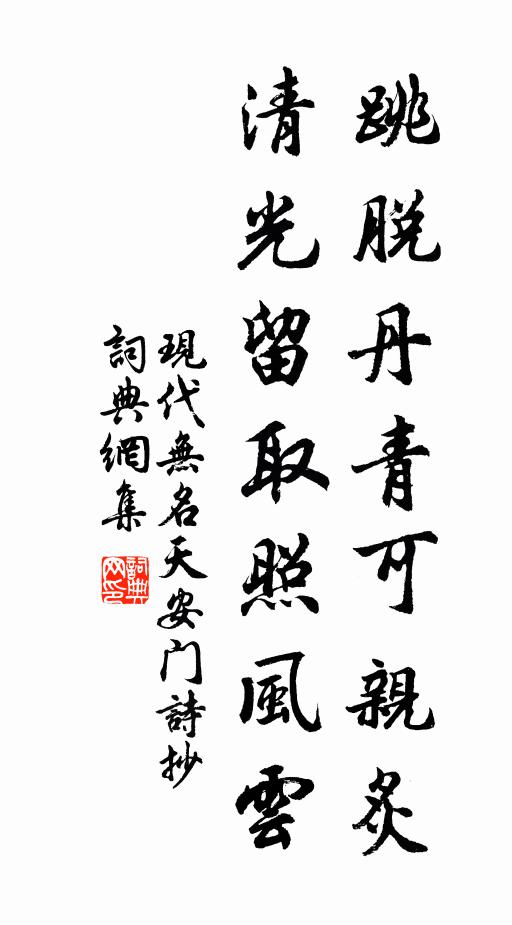 跳脫丹青可親炙
清光留取照風雲
現代無名天安門詩抄
詞典網集
詞典網印